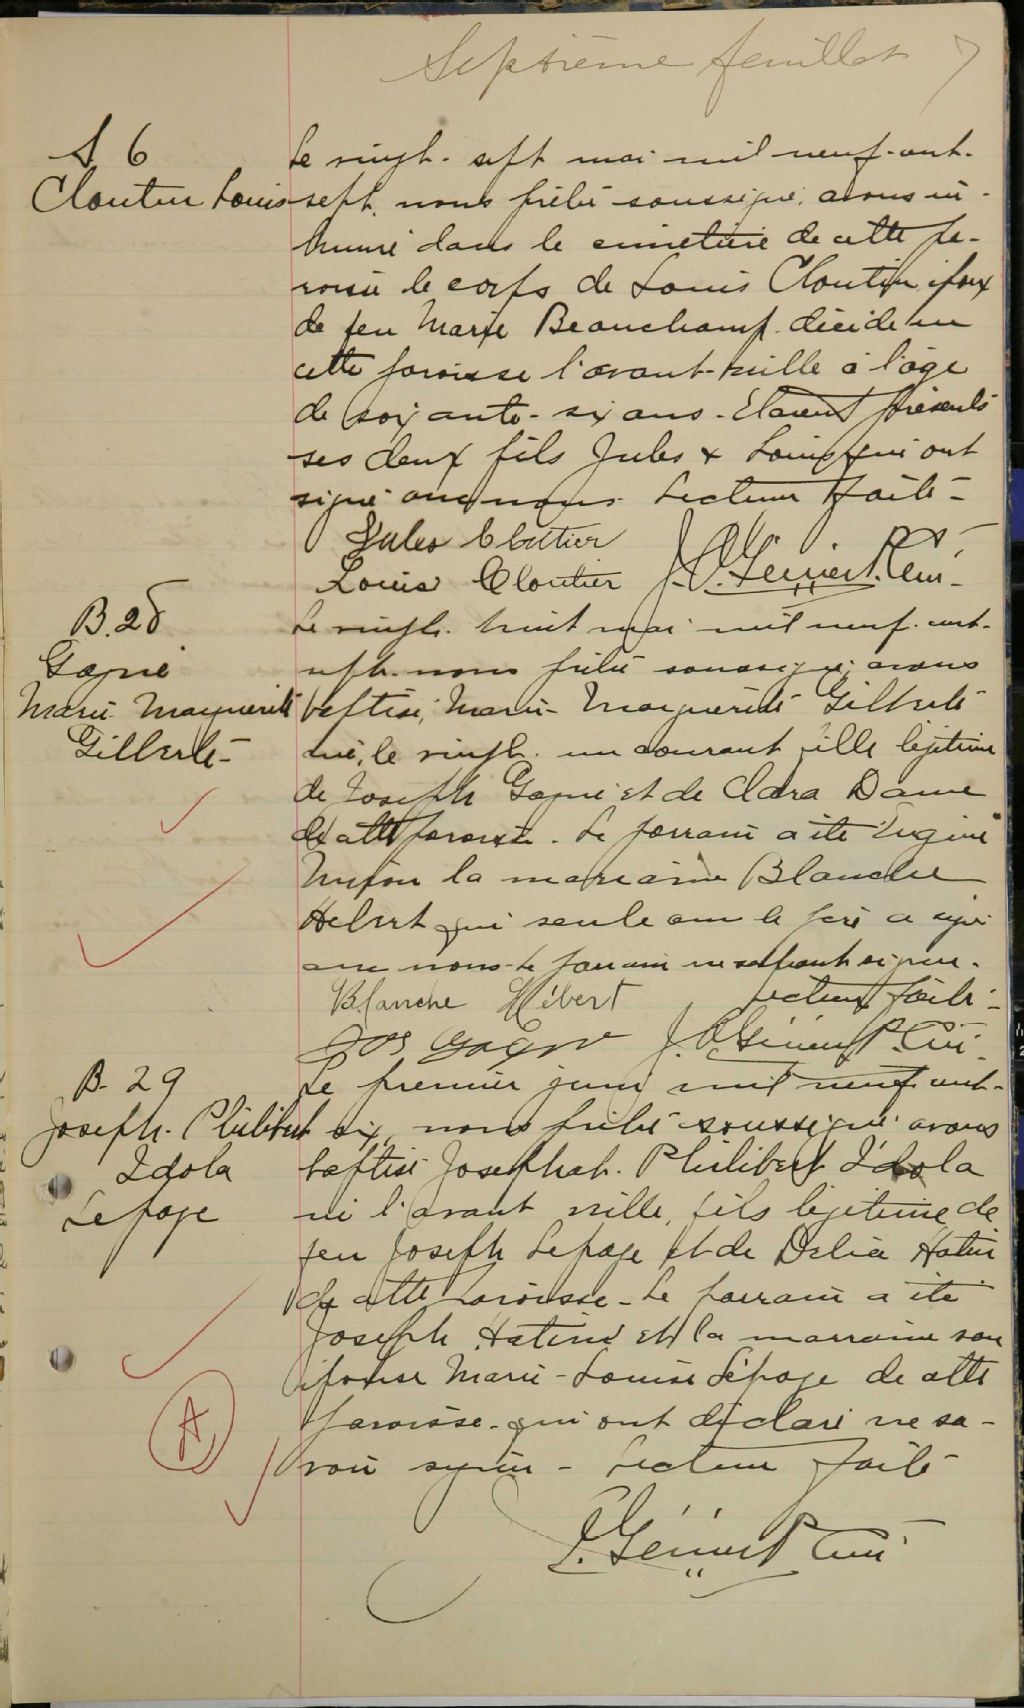 Septième feuillet 7
S 6
Cloutier Louis
Le vingt-sept mai mil neuf-cent-
sept, nous prêtre soussigné, avons in-
humé dans le cimetière de cette pa-
roisse le corps de Louis Cloutier époux
de feu Marie Beauchamp décédé en
cette paroisse l'avant-veille à l'âge
de soixante-six ans - Etaient présents
ses deux fils Jules & Louis qui ont
signé avec nous. Lecture faite -
Jules Cloutier
Louis Cloutier J. O. Ptre Curé -
B. 28
Gagné
Marie Marguerite
Gilberte -
Le vingt-huit mai mil neuf-cent-
sept nous prêtre soussigné avons
baptisé, Marie-Marguerite Gilberte
née, le vingt-un courant fille légitime
de Joseph Gagné et de Clara Dame
de cette paroisse. Le parrain a été Eugène
la marraine Blanche
Hébert qui seule avec le père a signé
avec nous - le parrain ne sachant signer.
Blanche Hébert Lecture faite -
Jos Gagné J. O. Ptre Curé -
B. 29
Joseph. Philibert
Idola
Lepage
Le premier juin mil neuf-cent-
six, nous prêtre soussigné avons
baptisé Josephat. Philibert Idola
né l'avant veille, fils légitime de
feu Joseph Lepage et de Délia Hatin
de cette paroisse - Le parrain a été
Joseph Hatin et la marraine son
épouse Marie-Louise Lepage de cette
paroisse - qui ont déclaré ne sa-
voir signer - Lecture faite -
A
Ptre Curé